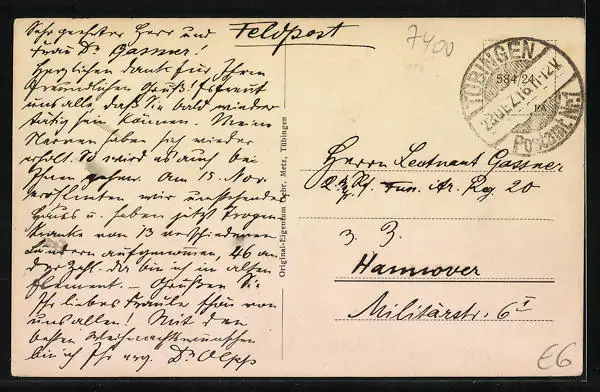 Sehr geehrter Herr und
Frau Dr Gassner!
Herzlichen Dank für Ihren
freundlichen Gruß! Es freut
uns alle, daß Sie bald wieder
tätig sein können. Meine
Nerven haben sich wieder
erholt. So wird es auch bei
Ihnen gehen. Am 15. Nov.
eröffneten wir umstehendes
Haus u. haben jetzt Tropen-
kranke von 13 verschiedenen
Ländern aufgenommen, 46 an
der Zahl. Da bin ich im alten
Element. – Grüßen Sie
Ihr liebes Fraule von
uns allen! Mit den
besten Weihnachtswünschen
bin ich Ihr erg. Dr Olpp
Feldpost
7400
TÜBINGEN
584 24
23 DEZ. 16 11-12 V.
Postamt No 1
Original-Eigentum Gebr. Metz, Tübingen
Herrn Leutnant Gassner
Art. Rg 20
z. Z.
Hannover
Militärstr. 6 I
E6